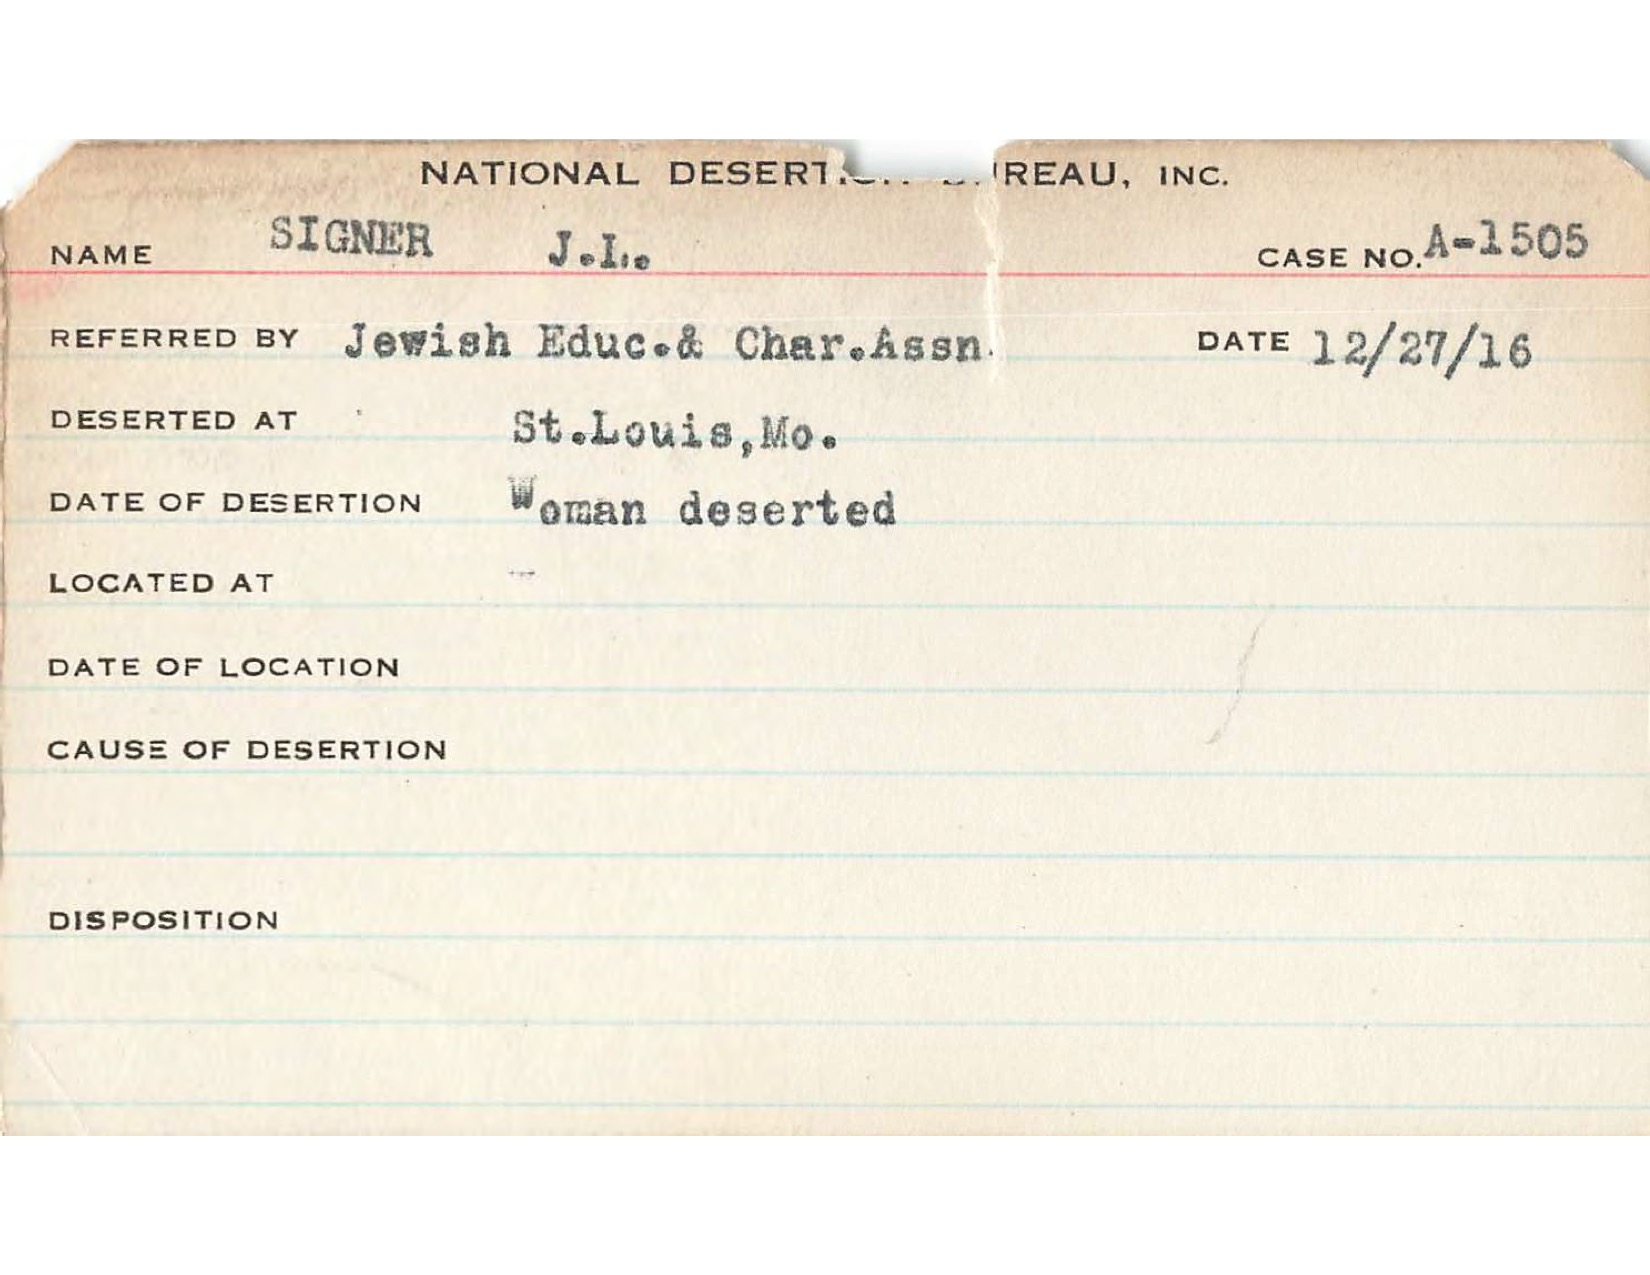 NATIONAL DESERTION BUREAU, INC.
NAME SIGNER J.L. CASE NO. A-1505
REFERRED BY Jewish Educ.& Char.Assn. DATE 12/27/16
DESERTED AT St.Louis,Mo.
DATE OF DESERTION Woman deserted
LOCATED AT
DATE OF LOCATION
CAUSE OF DESERTION
DISPOSITION